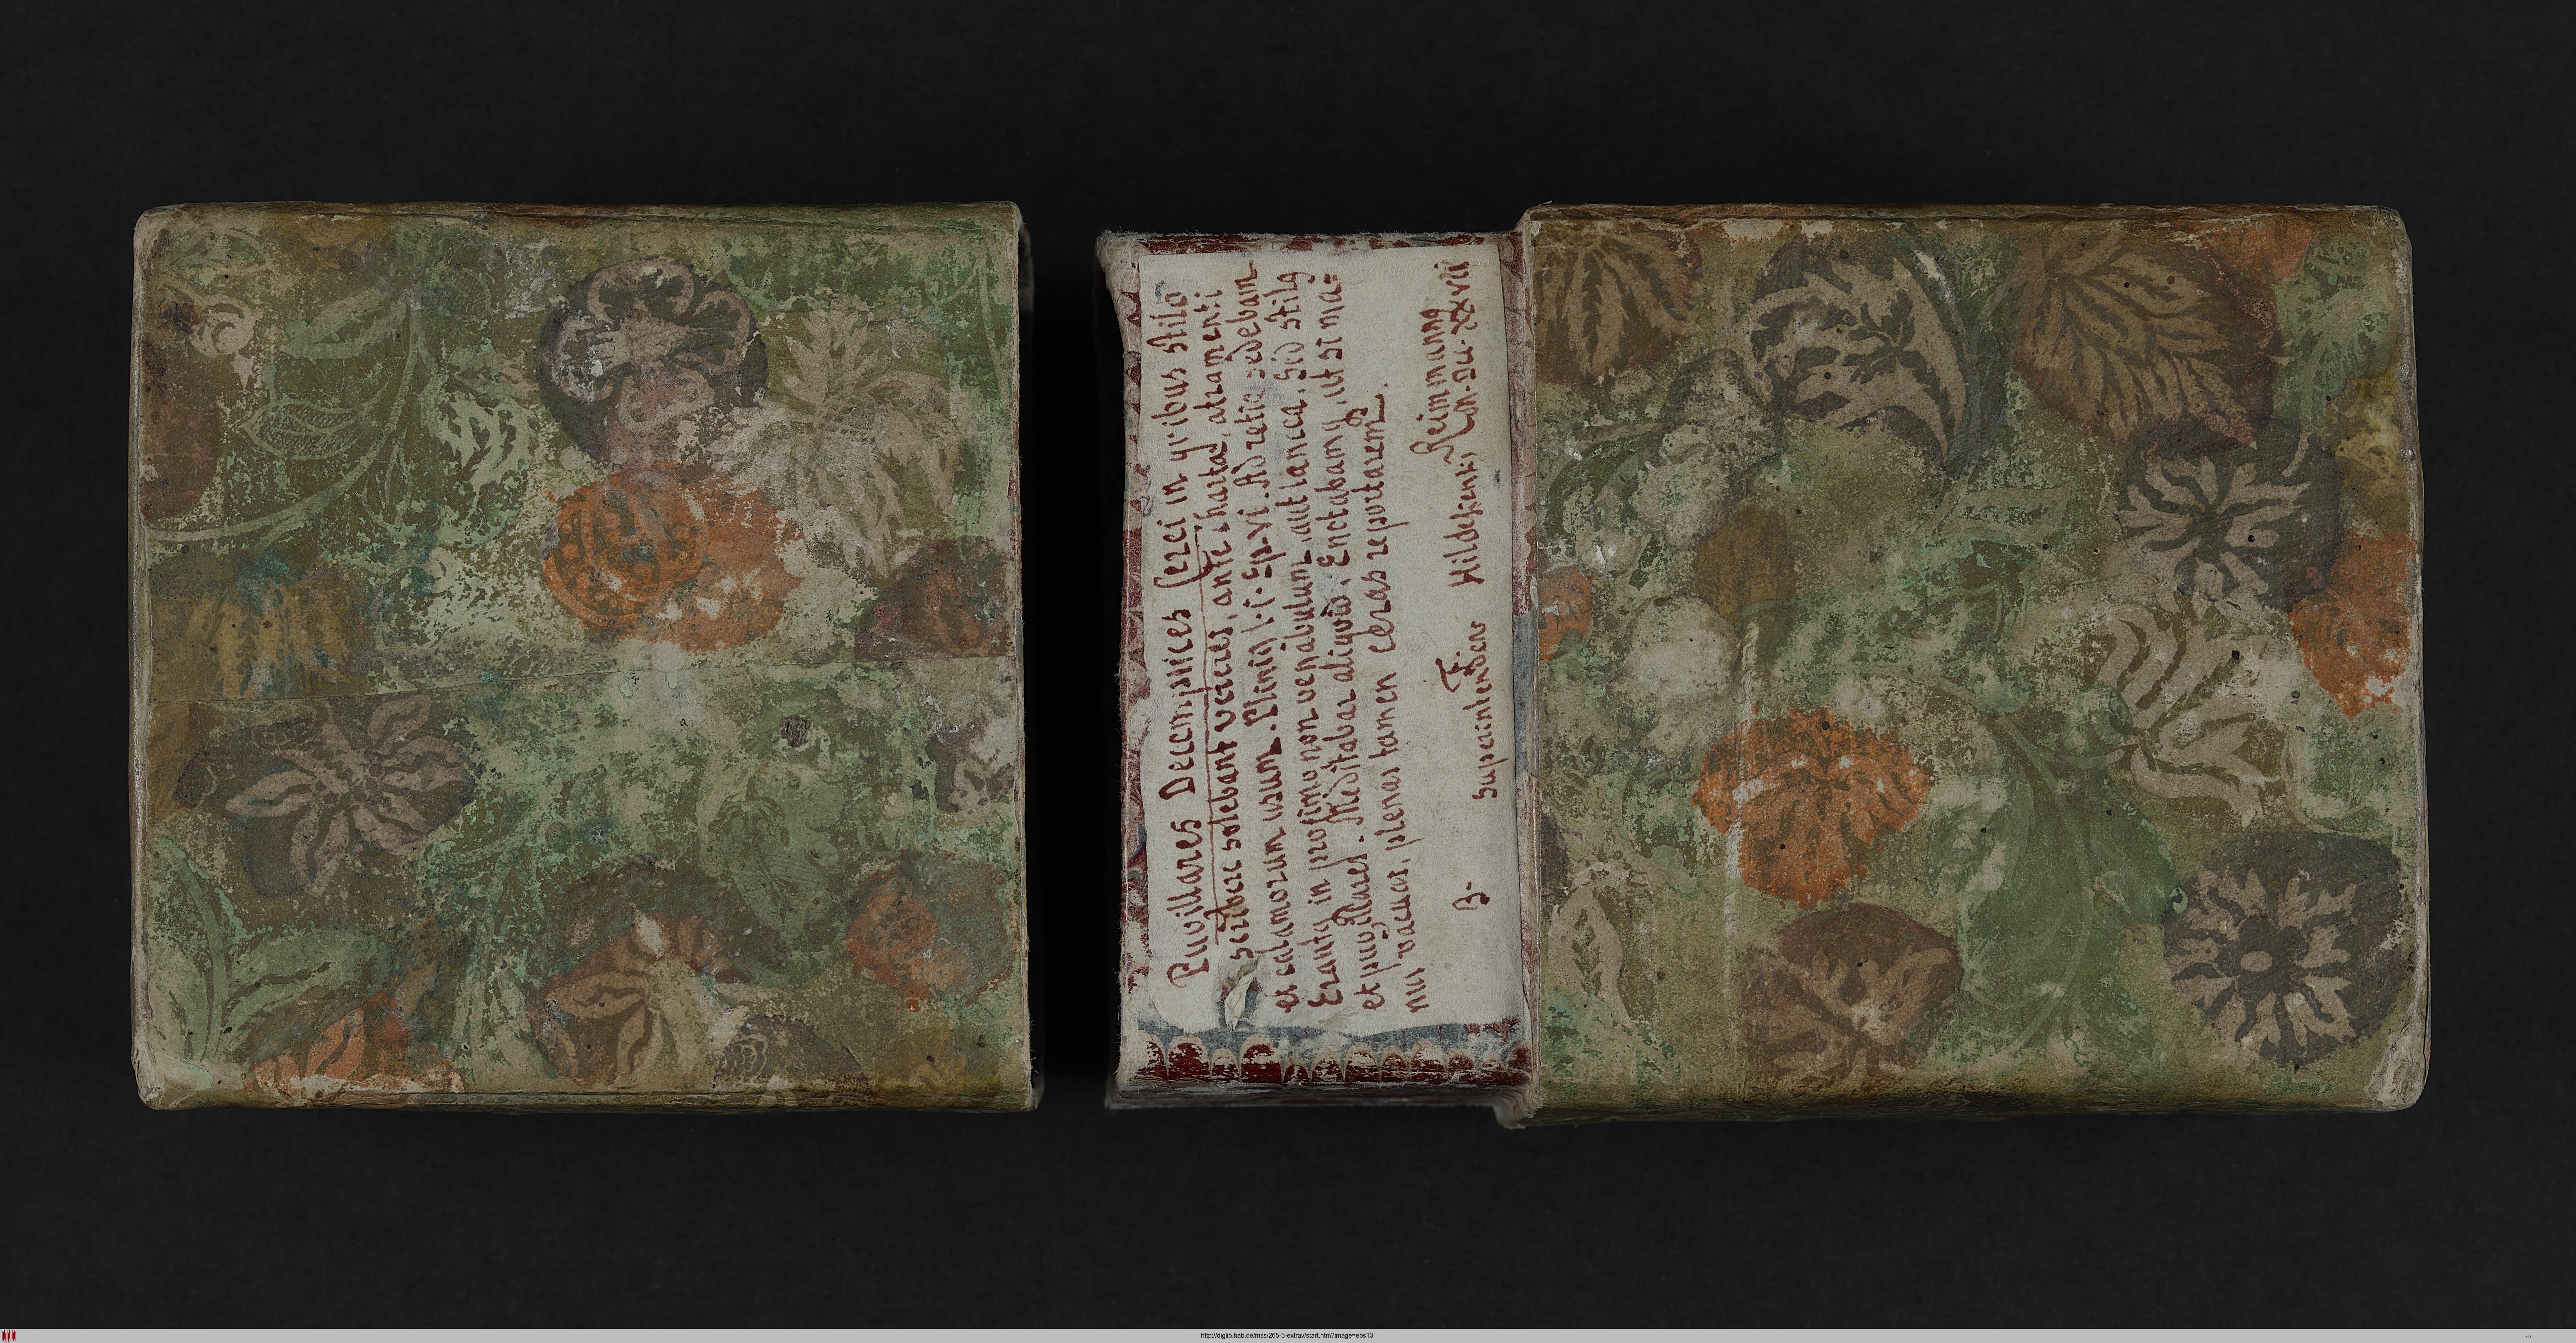 Pugillares Decemplices Cerei in qvibus stilo
scribere solebant veteres, ante chartae, atramenti
et calamorum usum. Pliniq l. i. Ep. vi. Ad retia sedebam
Erantq in proximo non venabulum, aut lancea, sed stilq
et pugillares. Meditabar aliqvid, Enotabamq, ut si ma=
nus vacuas, plenas tamen ceras reportarem.
Reimmannq
Hildesiensis
Superintendens
http://diglib.hab.de/mss/265-5-extrav/start.htm?image=ebs13